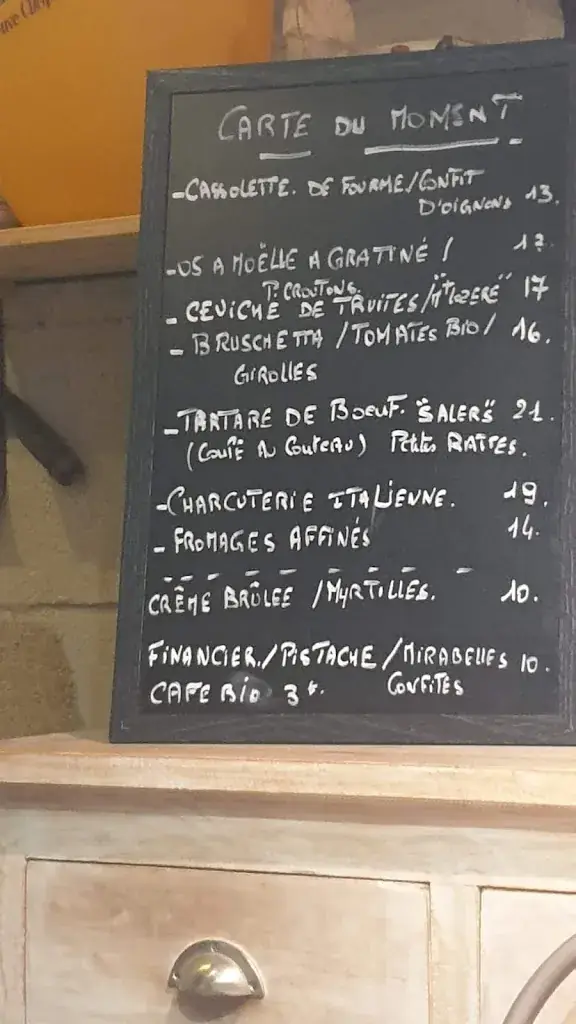 CARTE DU MOMENT
-CASSOLETTE. DE FOURME/CONFIT
D'OIGNONS 13.
-OS A MOËLLE A GRATINÉ /
P. CROUTONS.
- CEVICHE DE TRUITES/"LOZERE" 17
- BRUSCHETTA /TOMATES BIO/ 16.
GIROLLES
-TARTARE DE BOEUF. "SALERS" 21.
(COUPÉ AU COUTEAU) Petites RATTES.
-CHARCUTERIE ITALIENNE. 19.
- FROMAGES AFFINÉS 14.
CRÊME BRÛLEE /MYRTILLES. 10.
FINANCIER./PISTACHE/MIRABELLES 10.
CAFE BiO 3€. CONFITES